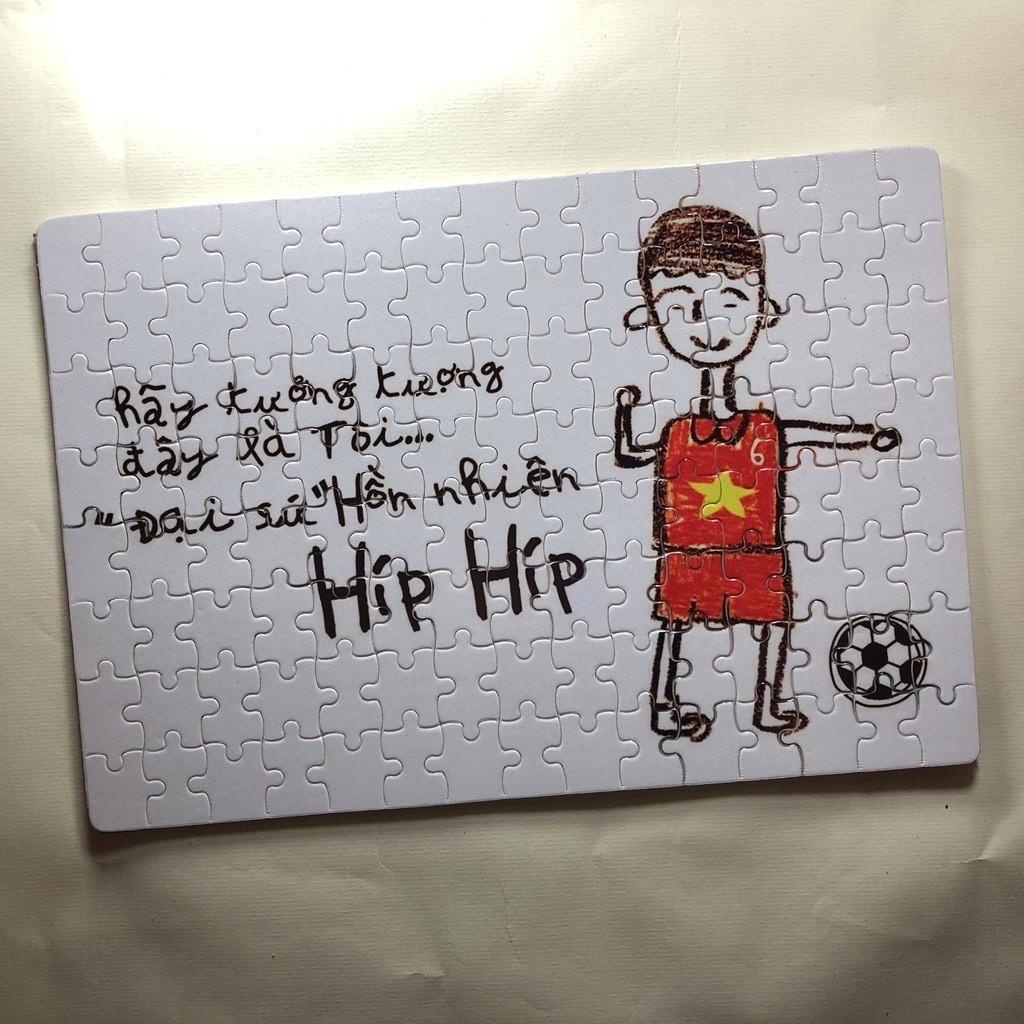 hãy tưởng tượng
đây là Tôi...
"Đại sứ" Hồn nhiên
Híp Híp
6